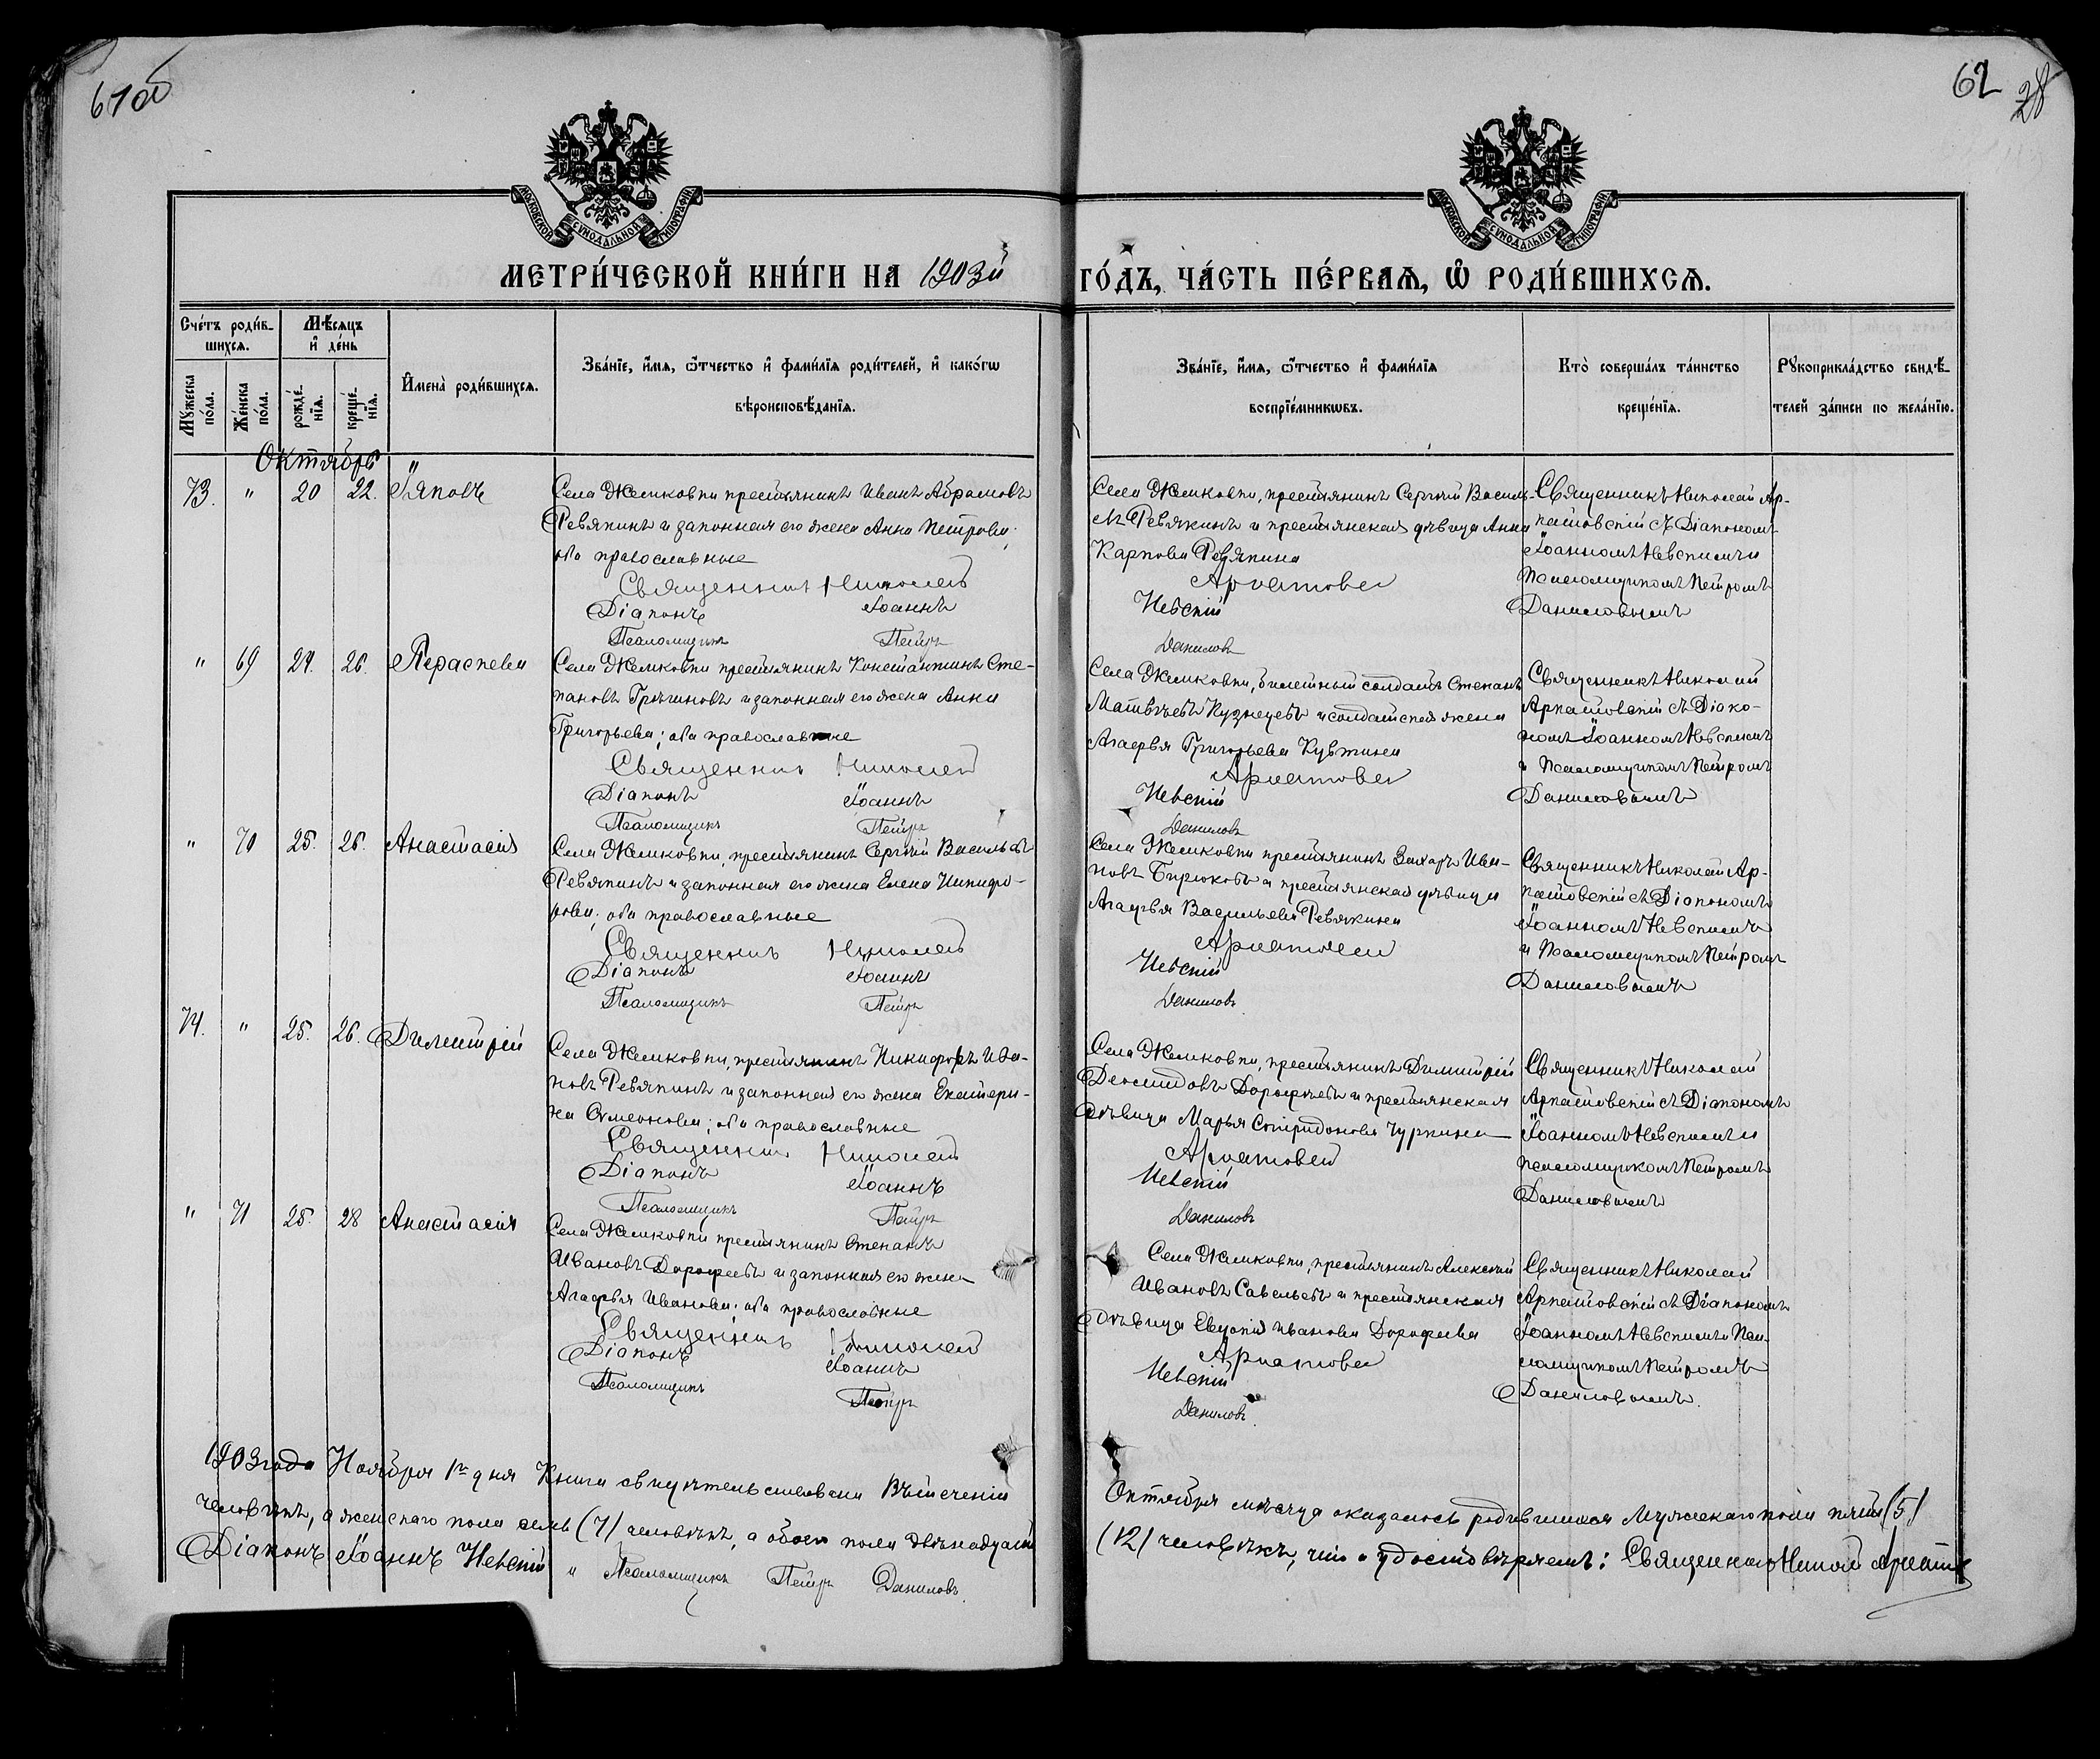 61об
62
28
МОСКОВСКОЙ СУНОДАЛЬНОЙ ТИПОГРАФІИ
МОСКОВСКОЙ СУНОДАЛЬНОЙ ТИПОГРАФІИ
МЕТРИ́ЧЕСКОЙ КНИ́ГИ НА 1903й ГО́ДЪ, ЧА́СТЬ ПЕ́РВАѦ, Ѡ РОДИ́ВШИХСѦ.
Сче́тъ роди́в-
шихсѧ.
Мѣ́сѧцъ
и҆ де́нь
Мꙋ́жеска по́ла.
Же́нска по́ла.
рожде́-нїѧ.
креще́-нїѧ.
И҆мена̀ роди́вшихсѧ.
Зва́нїе, и҆́мѧ, ѻ҆́тчество и҆ фами́лїѧ роди́телей, и҆ како́гѡ
вѣроисповѣ́данїѧ.
Зва́нїе, и҆́мѧ, ѻ҆́тчество и҆ фами́лїѧ
воспрїе́мникѡвъ.
Кто̀ соверша́лъ та́инство
креще́нїѧ.
Рꙋкоприкла́дство свидѣ́-
телей за́писи по жела́нїю.
Октябрь
73. " 20 22. Іаковъ
Села Жемковки крестьянинъ Иванъ Абрамовъ
Ревякинъ и законная его жена Анна Петрова;
оба православные
Священникъ Николай
Діаконъ Іоаннъ
Псаломщикъ Петръ
Села Жемковки, крестьянинъ Сергій Василь-
евъ Ревякинъ и крестьянская дѣвица Анна
Карпова Ревякина
Арнатовъ
Невскій
Даниловъ
Священникъ Николай Ар-
натовскій съ Діакономъ
Іоанномъ Невскимъ и
Псаломщикомъ Петромъ
Даниловымъ
" 69 24. 26. Параскева
Села Жемковки крестьянинъ Константинъ Сте-
пановъ и законная его жена Анна
Григорьева; оба православные
Священникъ Николай
Діаконъ Іоаннъ
Псаломщикъ Петръ
Села Жемковки, билетный солдатъ Степанъ
Матвѣевъ Кузнецовъ и солдатская жена
Агафья Григорьева
Невскій
Даниловъ
Священникъ Николай
Арнатовскій съ Діако-
номъ Іоанномъ Невскимъ
и Псаломщикомъ Петромъ
Даниловымъ
" 70 25. 26. Анастасія
Села Жемковки, крестьянинъ Сергій Васильевъ
Ревякинъ и законная его жена Елена Никифо-
рова; оба православные
Священникъ Николай
Діаконъ Іоаннъ
Псаломщикъ Петръ
Села Жемковки крестьянинъ Захаръ Ива-
новъ Бирюковъ и крестьянская дѣвица
Агафья Васильева Ревякина
Невскій
Даниловъ
Священникъ Николай Ар-
натовскій съ Діакономъ
Іоанномъ Невскимъ
и Псаломщикомъ Петромъ
Даниловымъ
74. " 25. 26. Димитрій
Села Жемковки, крестьянинъ Никифоръ Ива-
новъ Ревякинъ и законная его жена Екатери-
на Симеонова; оба православные
Священникъ Николай
Діаконъ Іоаннъ
Псаломщикъ Петръ
Села Жемковки, крестьянинъ Димитрій
Демидовъ Дорофеевъ и крестьянская
дѣвица Марья Спиридонова Чуркина
Невскій
Даниловъ
Священникъ Николай
Арнатовскій съ Діакономъ
Іоанномъ Невскимъ и
Псаломщикомъ Петромъ
Даниловымъ
" 71 25. 28 Анастасія
Села Жемковки крестьянинъ Степанъ
Ивановъ Дорофеевъ и законная его жена
Агафья Иванова; оба православные
Священникъ Николай
Діаконъ Іоаннъ
Псаломщикъ Петръ
Села Жемковки, крестьянинъ Алексѣй
Ивановъ Савельевъ и крестьянская
дѣвица Евдокія Иванова Дорофеева
Невскій
Даниловъ
Священникъ Николай
Арнатовскій съ Діакономъ
Іоанномъ Невскимъ и Пса-
ломщикомъ Петромъ
Даниловымъ.
1903 года Ноября 1го дня Книга свидѣтельствована Въ теченіи Октября мѣсяца оказалось родившихся мужскаго пола пять (5)
человѣкъ, а женскаго пола семь (7) человѣкъ, а обоего пола двѣнадцать (12) человѣкъ, что и удостовѣряемъ: Священникъ Николай
Діаконъ Іоаннъ Невскій и Псаломщикъ Петръ Даниловъ.